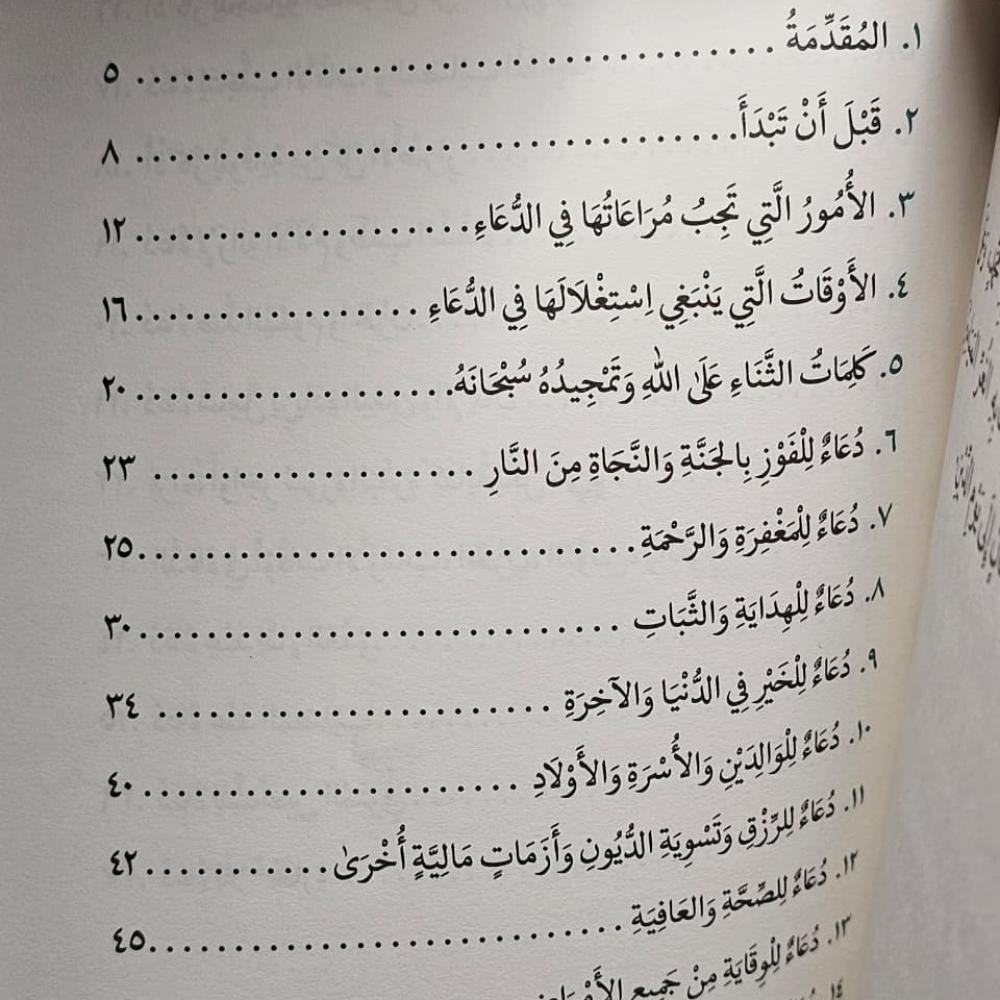 ١. المُقَدِّمَةُ ........................................ ٥
٢. قَبْلَ أَنْ تَبْدَأَ .................................... ٨
٣. الأُمُورُ الَّتِي تَجِبُ مُرَاعَاتُهَا فِي الدُّعَاءِ .................... ١٢
٤. الأَوْقَاتُ الَّتِي يَنْبَغِي اِسْتِغْلَالَهَا فِي الدُّعَاءِ ................. ١٦
٥. كَلِمَاتُ الثَّنَاءِ عَلَىٰ اللهِ وَتَمْجِيدُهُ سُبْحَانَهُ. .................. ٢٠
٦. دُعَاءٌ لِلْفَوْزِ بِالجَنَّةِ وَالنَّجَاةِ مِنَ النَّارِ .................. ٢٣
٧. دُعَاءٌ لِلْمَغْفِرَةِ وَالرَّحْمَةِ ............................ ٢٥
٨. دُعَاءٌ لِلْهِدَايَةِ وَالثَّبَاتِ ............................ ٣٠
٩. دُعَاءٌ لِلْخَيْرِ فِي الدُّنْيَا وَالآخِرَةِ ...................... ٣٤
١٠. دُعَاءٌ لِلْوَالِدَيْنِ وَالأُسْرَةِ وَالأَوْلَادِ ..................... ٤٠
١١. دُعَاءٌ لِلرِّزْقِ وَتَسْوِيَةِ الدُّيُونِ وَأَزَمَاتٍ مَالِيَّةٍ أُخْرَىٰ ........... ٤٢
١٢. دُعَاءٌ لِلصِّحَّةِ وَالعَافِيَةِ ........................... ٤٥
١٣. دُعَاءٌ لِلْوِقَايَةِ مِنْ جَمِيعِ
١٤.